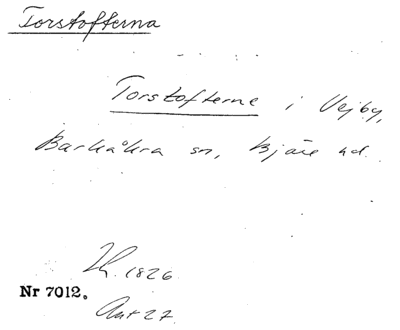 Torstofterna
Torstofterne i Vejby,
Barkåkra sn, Bjäre hd.
1826
Nr 7012.
Akt 27